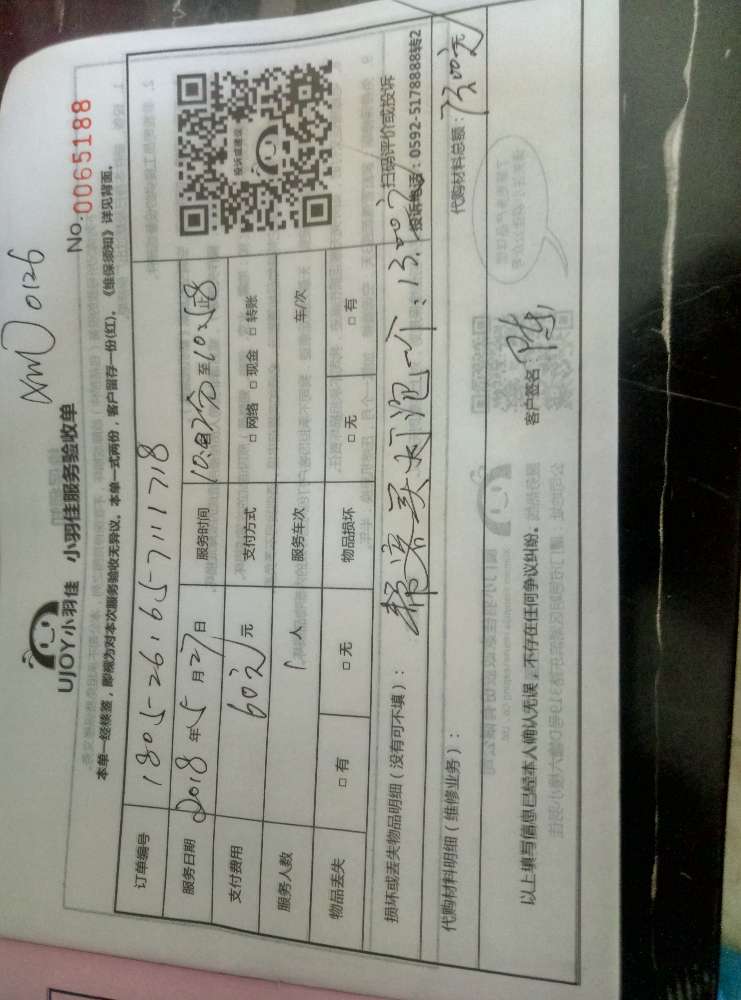 XMO 0126
UJOY小羽佳 小羽佳服务验收单
No.0065188
本单一经续签，即视为对本次服务验收无异议。本单一式两份，客户留存一份(红)。《维保须知》详见背面。
订单编号 1805-26165-7111718
服务日期 2018年5月27日 服务时间 至
支付费用 60元 元 支付方式 □网络 □现金 □转账
服务人数 1人 服务车次 车/次
物品丢失 □有 □无 物品损坏 □无 □有
投诉或建议
扫码评价或投诉
投诉电话：0592-5178888转2
损坏或丢失物品明细（没有可不填）： 帮客买灯泡一个：13.00元
代购材料明细（维修业务）： 代购材料总额： 73.00元
以上填写信息已经本人确认无误，不存在任何争议纠纷。 客户签名： 陈